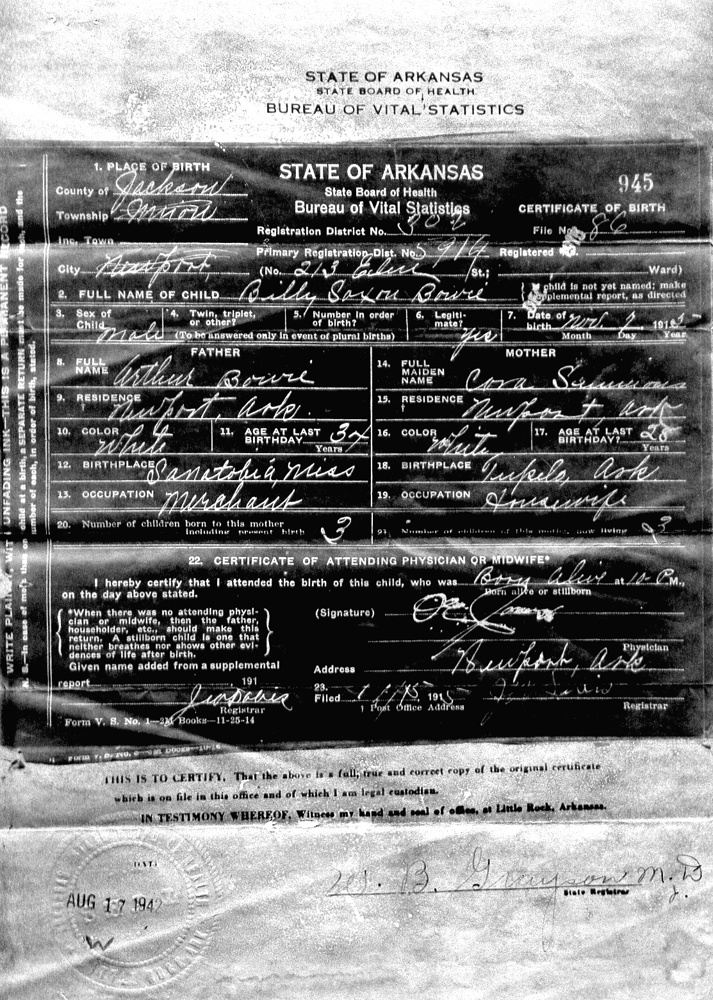 STATE OF ARKANSAS
STATE BOARD OF HEALTH
BUREAU OF VITAL STATISTICS
1. PLACE OF BIRTH
County of Jackson
Township Union
Inc. Town
City Newport
STATE OF ARKANSAS
State Board of Health
Bureau of Vital Statistics
945
CERTIFICATE OF BIRTH
Registration District No. 302
File No. 86
Primary Registration Dist. No. 5916 Registered No.
(No. 213 St.; Ward)
2. FULL NAME OF CHILD Billy Saxon Bowie
child is not yet named; make supplemental report, as directed
3. Sex of Child Male
4. Twin, triplet, or other?
5. Number in order of birth?
(To be answered only in event of plural births)
6. Legitimate? Yes
7. Date of birth Nov. 7 1915
Month Day Year
FATHER
8. FULL NAME Arthur Bowie
9. RESIDENCE Newport, Ark.
10. COLOR White
11. AGE AT LAST BIRTHDAY 34 Years
12. BIRTHPLACE Sanatobia, Miss
13. OCCUPATION Merchant
MOTHER
14. FULL MAIDEN NAME Cora Summons
15. RESIDENCE Newport Ark
16. COLOR White
17. AGE AT LAST BIRTHDAY? 28 Years
18. BIRTHPLACE Tupelo, Ark
19. OCCUPATION Housewife
20. Number of children born to this mother including present birth 3
21. Number of children of this mother now living 3
22. CERTIFICATE OF ATTENDING PHYSICIAN OR MIDWIFE*
I hereby certify that I attended the birth of this child, who was Born Alive at 10 P M.,
Born alive or stillborn
on the day above stated.
*When there was no attending physi-
cian or midwife, then the father,
householder, etc., should make this
return. A stillborn child is one that
neither breathes nor shows other evi-
dences of life after birth.
Given name added from a supplemental
report 191
Registrar
(Signature)
Physician
Address Newport, Ark
23.
Filed 1915
Post Office Address
Registrar
Form V. S. No. 1—2M Books—11-25-14
THIS IS TO CERTIFY, That the above is a full, true and correct copy of the original certificate
which is on file in this office and of which I am legal custodian.
IN TESTIMONY WHEREOF, Witness my hand and seal of office, at Little Rock, Arkansas.
DATE
AUG 17 1942
W. B. Grayson M.D
State Registrar